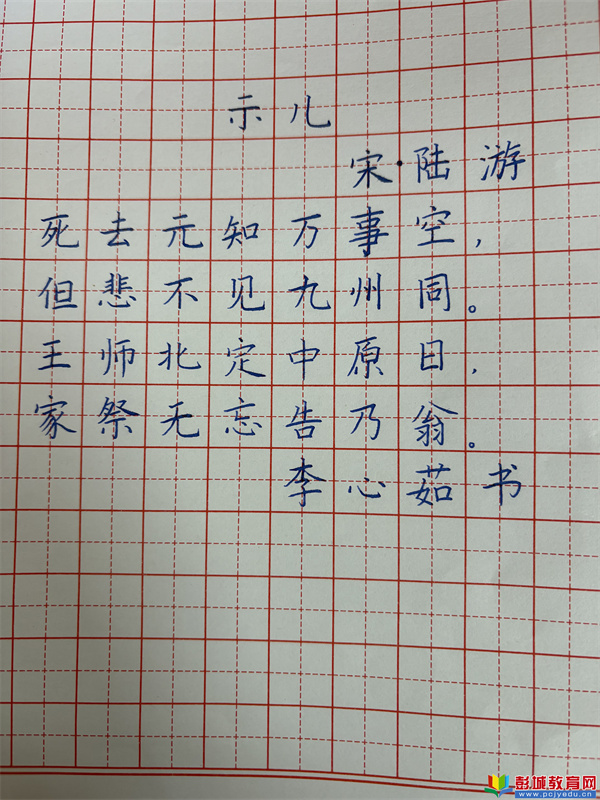 示儿
宋·陆游
死去元知万事空，
但悲不见九州同。
王师北定中原日，
家祭无忘告乃翁。
李心茹书
彭城教育网
www.pcjyedu.cn